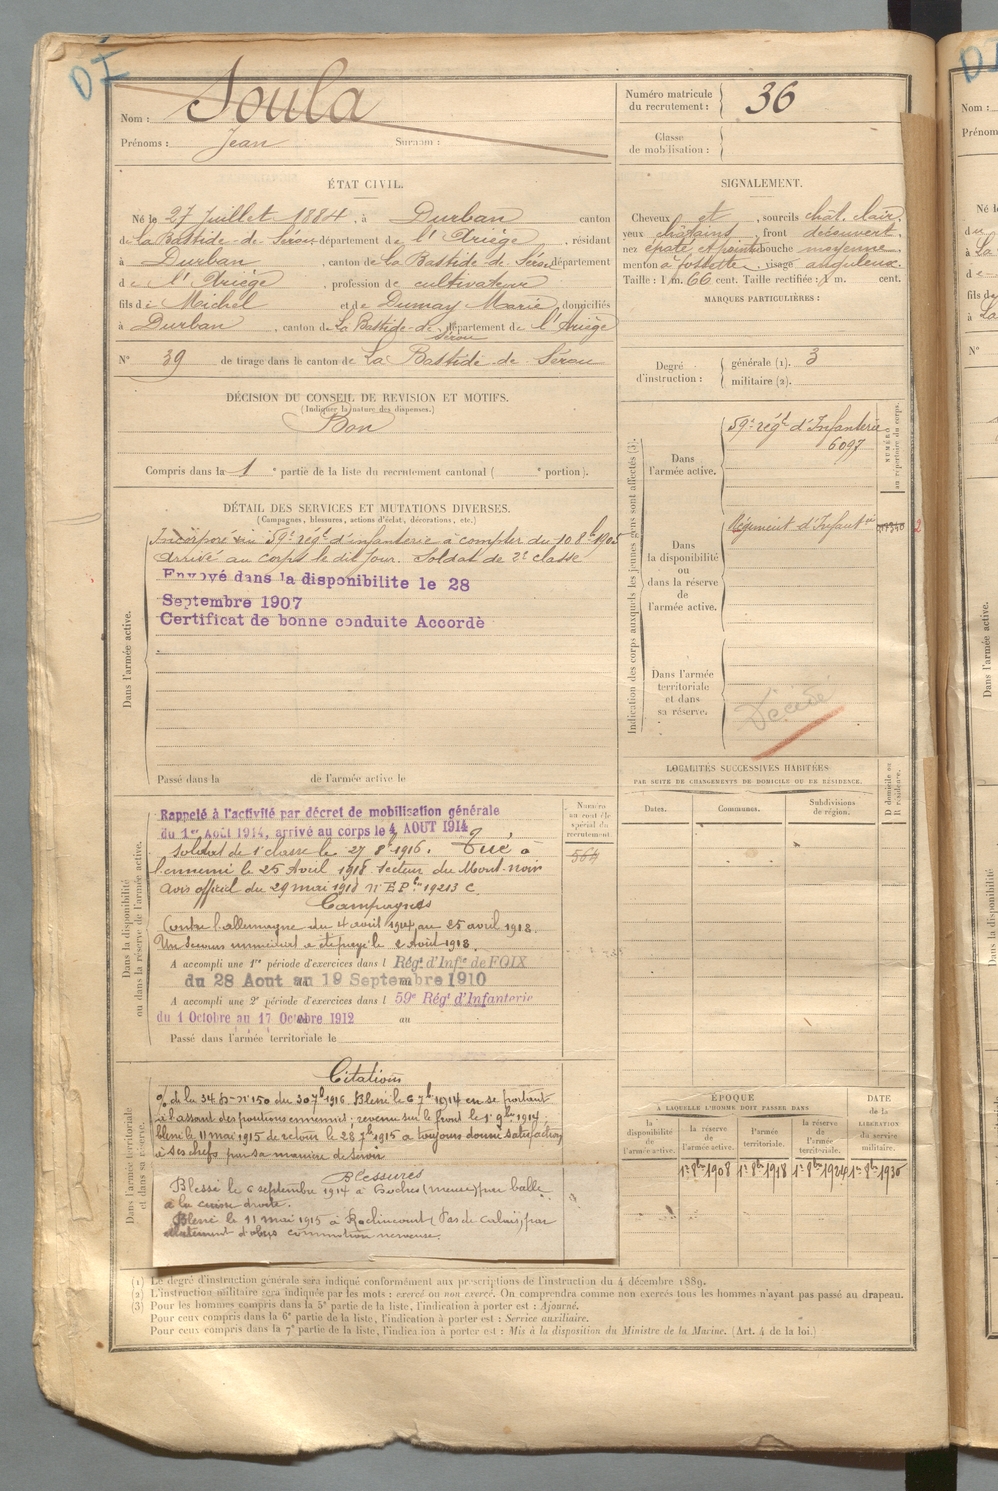 DI
Nom : Soula
Prénoms : Jean Surnom :
Numéro matricule du recrutement : 36
Classe de mobilisation :
ÉTAT CIVIL.
Né le 27 Juillet 1884, à Durban canton
de La Bastide-de-Sérou département de l'Ariège, résidant
à Durban, canton de La Bastide-de-Sérou département
de l'Ariège, profession de cultivateur
fils de Michel et de Dumay Marie, domiciliés
à Durban, canton de La Bastide-de-Sérou département de l'Ariège
N° 39 de tirage dans le canton de La Bastide-de-Sérou
SIGNALEMENT.
Cheveux et, sourcils chat. clair.
yeux châtains, front découvert
nez épaté et pointu bouche moyenne
menton à fossette, visage anguleux.
Taille : 1 m. 66 cent. Taille rectifiée : 1 m. cent.
MARQUES PARTICULIÈRES :
Degré d'instruction : générale (1). 3
militaire (2).
DÉCISION DU CONSEIL DE REVISION ET MOTIFS.
(Indiquer la nature des dispenses.)
Bon
Compris dans la 1e partie de la liste du recrutement cantonal ( e portion).
DÉTAIL DES SERVICES ET MUTATIONS DIVERSES.
(Campagnes, blessures, actions d'éclat, décorations, etc.)
Dans l'armée active.
Incorporé au 59e régt d'infanterie à compter du 10 8bre 1905
arrivé au corps le dit jour. soldat de 2e classe
Envoyé dans la disponibilite le 28
Septembre 1907
Certificat de bonne conduite Accordè
Passé dans la de l'armée active le
Indication des corps auxquels les jeunes gens sont affectés (3).
Dans l'armée active.
59e régt d'Infanterie
6097
NUMÉRO au répertoire du corps.
Dans la disponibilité ou dans la réserve de l'armée active.
Régiment d'Infanterie
Dans l'armée territoriale et dans sa réserve.
Décédé
LOCALITÉS SUCCESSIVES HABITÉES
PAR SUITE DE CHANGEMENTS DE DOMICILE OU DE RÉSIDENCE.
Dates. Communes. Subdivisions de région. D domicile ou R résidence.
Dans la disponibilité ou dans la réserve de l'armée active.
Rappelé à l'activité par décret de mobilisation générale
du 1er Août 1914, arrivé au corps le 4 AOUT 1914
Soldat de 1e classe le 27 8bre 1916. Tué à
l'ennemi le 25 Avril 1918 secteur du Mont-noir
avis officiel du 29 mai 1918 n° E P 19213 C.
Campagnes
Contre l'allemagne du 4 août 1914 au 25 avril 1918.
Un secours immédiat a été payé le 2 Août 1918.
A accompli une 1re période d'exercices dans l Régt d'Infie de FOIX
du 28 Aout au 19 Septembre 1910
A accompli une 2e période d'exercices dans l 59e Régt d'Infanterie
du 1 Octobre au 17 Octobre 1912 au
Passé dans l'armée territoriale le
Numéro au contrôle spécial du recrutement.
564
Dans l'armée territoriale et dans sa réserve.
Citations
de la 34 D n° 150 du 30 7bre 1916. Blessé le 6 7bre 1914 en se portant
à l'assaut des positions ennemies; revenu sur le front le 1er 9bre 1914;
blessé le 11 mai 1915 de retour le 28 7bre 1915 a toujours donné satisfaction
à ses chefs par sa manière de servir
Blessures
Blessé le 6 septembre 1914 à (meuse) par balle
à la cuisse droite.
Blessé le 11 mai 1915 à Roclincourt (Pas de Calais) par
éclatement d'obus commotion nerveuse.
ÉPOQUE
À LAQUELLE L'HOMME DOIT PASSER DANS
DATE de la LIBÉRATION du service militaire.
la disponibilité de l'armée active. la réserve de l'armée active. l'armée territoriale. la réserve de l'armée territoriale.
1er 8bre 1908 1er 8bre 1918 1er 8bre 1924 1er 8bre 1930
(1) Le degré d'instruction générale sera indiqué conformément aux prescriptions de l'instruction du 4 décembre 1889.
(2) L'instruction militaire sera indiquée par les mots : exercé ou non exercé. On comprendra comme non exercés tous les hommes n'ayant pas passé au drapeau.
(3) Pour les hommes compris dans la 5e partie de la liste, l'indication à porter est : Ajourné.
Pour ceux compris dans la 6e partie de la liste, l'indication à porter est : Service auxiliaire.
Pour ceux compris dans la 7e partie de la liste, l'indication à porter est : Mis à la disposition du Ministre de la Marine. (Art. 4 de la loi.)